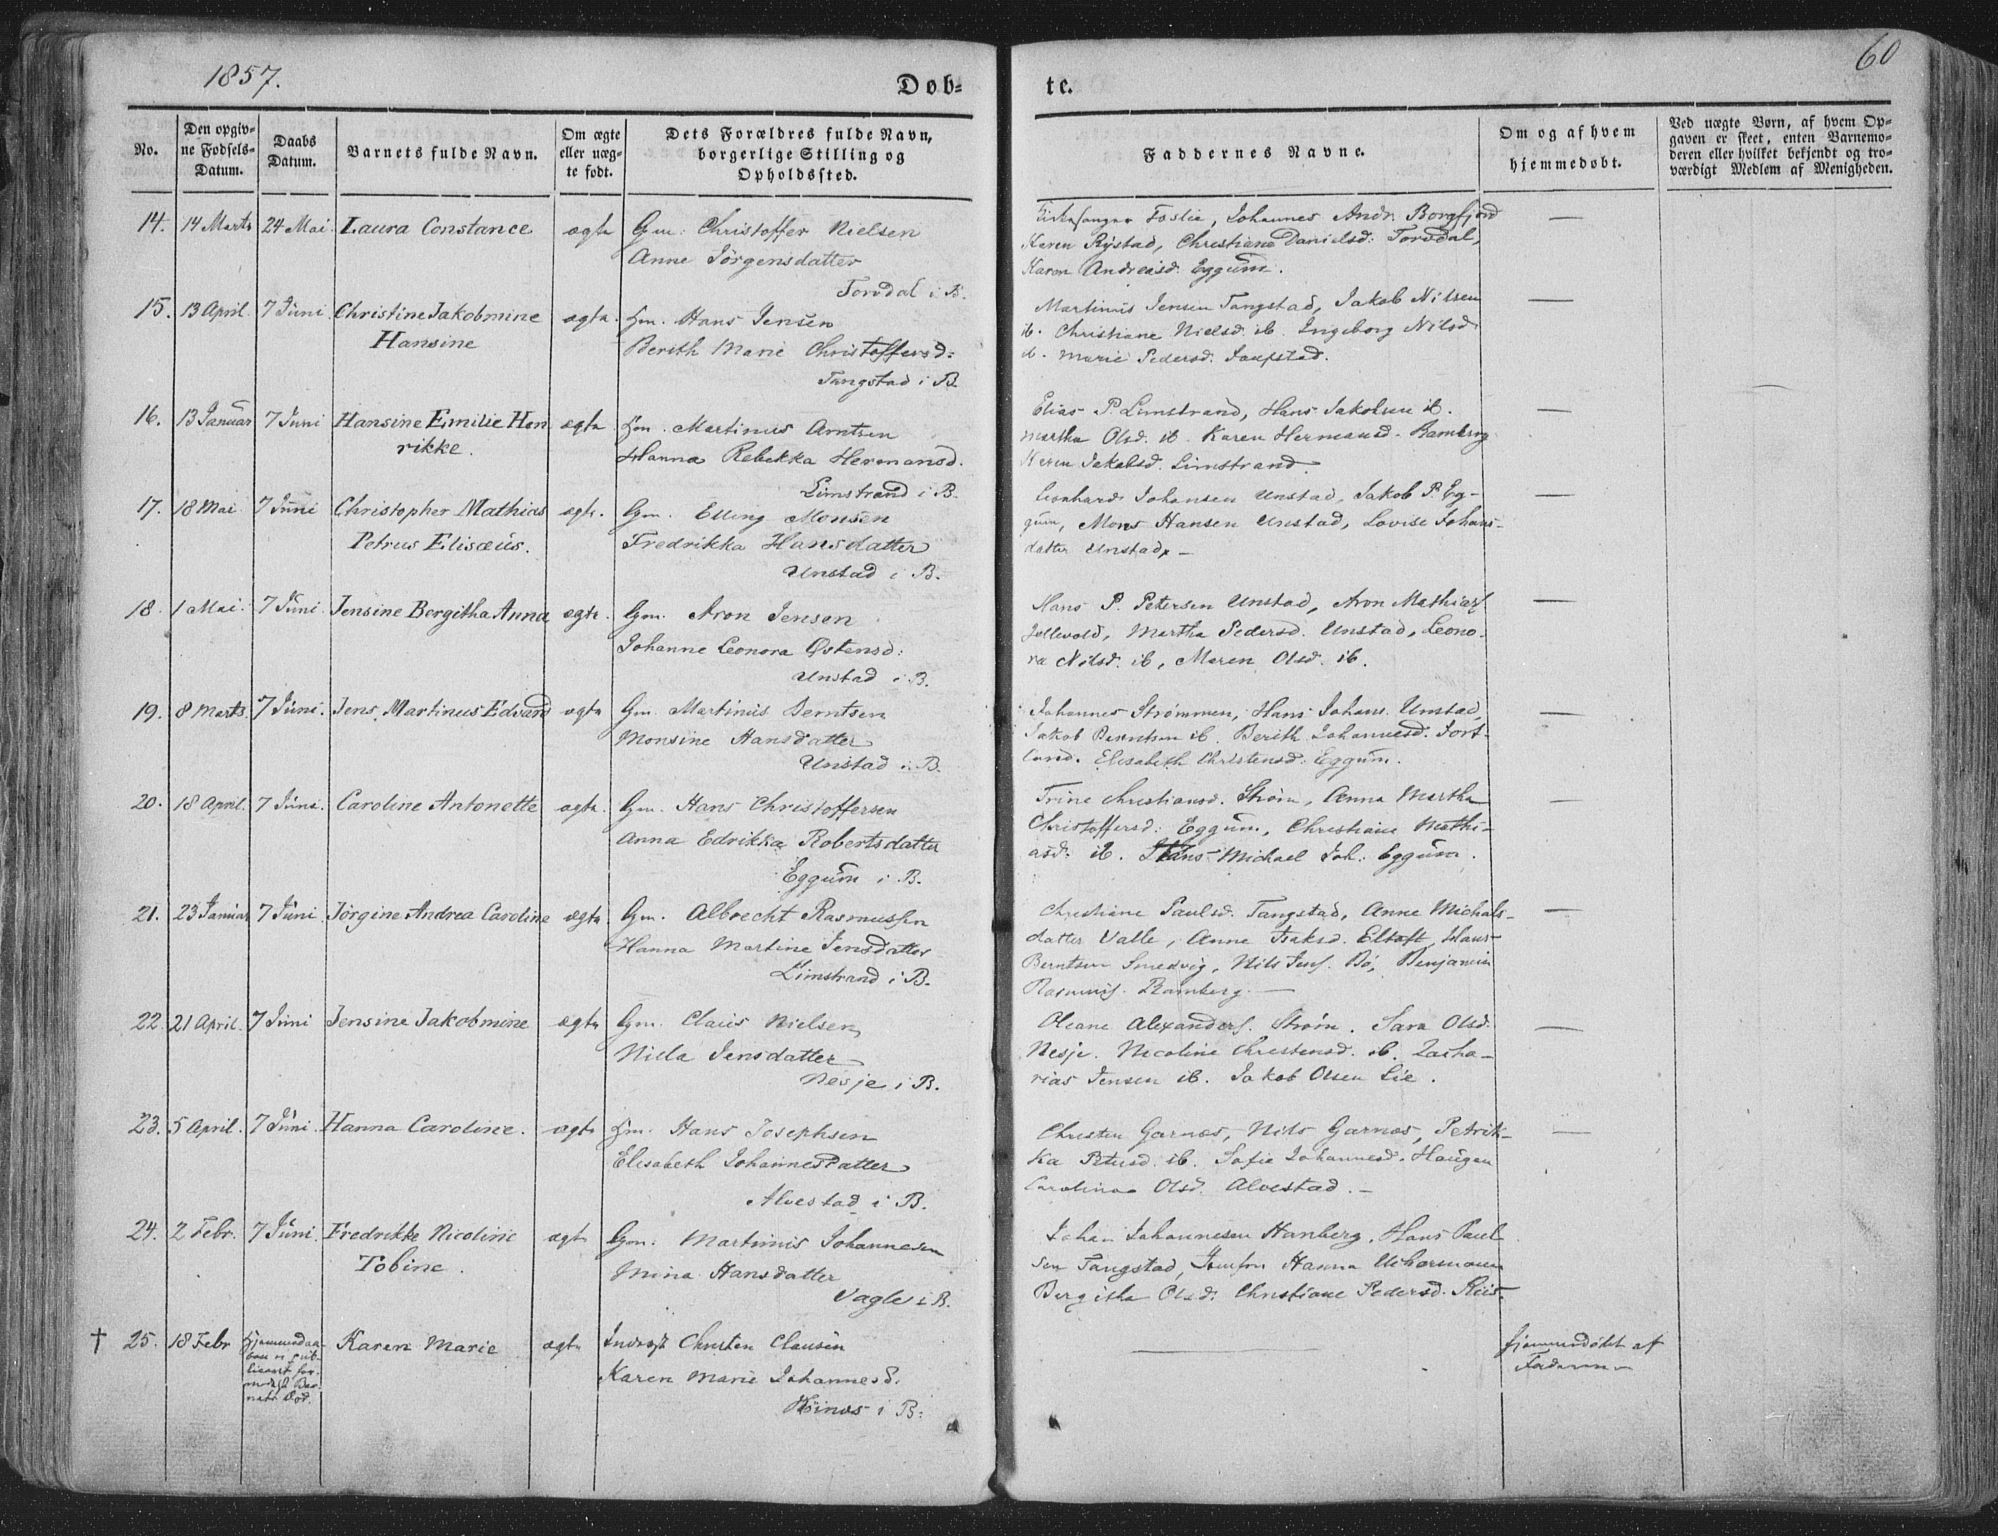 1857.
Døb-
te.
60
No.
Den opgiv-
ne Fødsels-
Datum.
Daabs
Datum.
Barnets fulde Navn.
Om ægte
eller uæg-
te født.
Dets Forældres fulde Navn,
borgerlige Stilling og
Opholdssted.
Faddernes Navne.
Om og af hvem
hjemmedøbt.
Ved uægte Børn, af hvem Op-
gaven er skeet, enten Barnemo-
deren eller hvilket bekjendt og tro-
værdigt Medlem af Menigheden.
14. 14 Marts 24 Mai Laura Constance ægte Gm. Christoffer Nielsen
Anne Jörgensdatter
Torvdal i B.
Kirkesanger Foslie, Johannes Andr. Borgfjord —
Karen Rystad, Christiane Danielsd. Torvdal,
Karen Andreasd. Eggum.
15. 13 April 7 Juni Christine Jakobmine ægte Hans Jensen
Hansine
Berith Marie Christoffersd:
Tangstad i B.
Martinus Jensen Tangstad, Jakob Nilsen —
ib. Christiane Nielsd. ib. Ingeborg Nilsd.
Marie Pedersd.
16. 13 Januar 7 Juni Hansine Emilie Hen ægte Martinus Arntsen
rikke.
Hanna Rebekka Hermansd.
Limstrand i B.
Elias P. Limstrand, Hans Jakobsen ib. —
Martha Olsd. ib. Karen Hermansd. Ramberg
Karen Jakobsd. Limstrand.
17. 18 Mai 7 Juni Christopher Mathias ægte. Gm. Elling Monsen
Petrus Elisæus.
Fredrikka Hansdatter
Unstad i B.
Leonhard Johansen Unstad, Jakob P. Eg- —
gum, Mons Hansen Unstad, Lovise Johans-
datter Unstad. —
18. 1 Mai. 7 Juni Jensine Bergitha Anna ægte. Gm. Aron Jensen
Johanne Leonora Østensd:
Unstad i B.
Hans P. Petersen Unstad, Aron Mathias —
Martha Pedersd. Unstad, Leono-
ra Nilsd. ib, Maren Olsd. ib.
19. 8 Marts 7 Juni. Jens Martinus Edvard ægte Gm. Martinus Berntsen
Monsine Hansdatter
Unstad i B.
Johannes Strømmen, Hans Johans. Unstad, —
Jakob Berntsen ib. Berith Johannesd. Sort-
land. Elisabeth Christensd. Eggum.
20. 18 April. 7 Juni. Caroline Antonette ægte. Gm. Hans Christoffersen
Anna Edrikka Robertsdatter
Eggum i B.
Trine Christiansd. Strøm, Anna Martha —
Christoffersd. Eggum, Christiane Mathi-
asd. ib. Hans Michael Joh. Eggum.
21. 23 Januar 7 Juni Jörgine Andrea Caroline ægte Gm. Albrecht Rasmussen
Hanna Martine Jensdatter
Limstrand i B.
Christiane Paulsd. Tangstad, Anne Michels- —
datter Valle, Anne Isaksd. Eltoft, Hans
Berntsen Smedvig, Nils Jens. Bö, Benjamin
Rasmus. Ramberg. —
22. 21 April. 7 Juni Jensine Jakobmine ægte Gm. Claus Nielsen
Nilla Jensdatter
Nesje i B.
Oleane Alexanders. Strøm. Sara Olsd. —
Nesje. Nicoline Christensd. ib. Zacha-
rias Jensen ib. Jakob Olsen Lie.
23. 5 April. 7 Juni. Hanna Caroline. ægte Hans Josephsen
Elisabeth Johannesdatter
Alvestad i B.
Christen Garnæs, Nils Garnæs, Petrik- —
ka Petersd. ib. Sofie Johannesd. Haugen
Caroline Olsd. Alvestad. —
24. 2 Febr. 7 Juni. Fredrikke Nicoline ægte Gm. Martinus Johannesen
Tobine.
Mina Hansdatter
Vagle i B.
Johan Johannesen Hanberg. Hans Paul
sen Tangstad, Hanna
Bergitha Olsd. Christiane Pedersd.
† 25. 18 Febr Hjemmedaa- Karen Marie ægte Christen Clausen
Karen Marie Johannesd.
i B.
hjemmedøbt af
Faderen